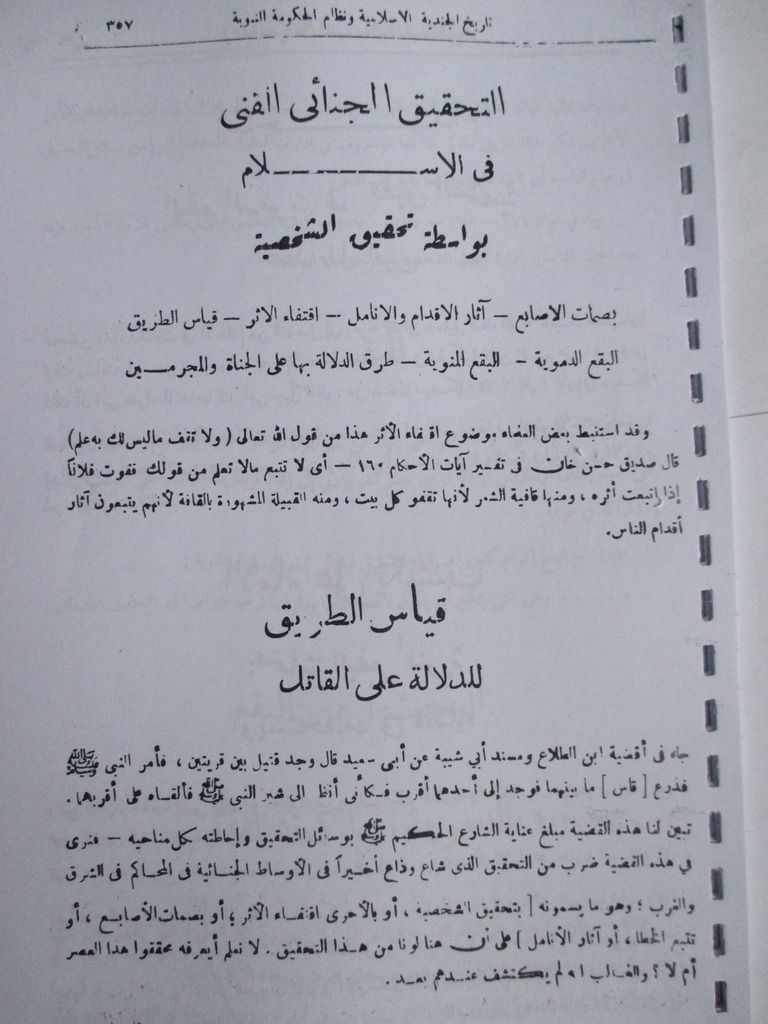 تاريخ الجندية الاسلامية ونظام الحكومة النبوية ٣٥٧
التحقيق الجنائى الفنى
فى الاســـــــــلام
بواسطة تحقيق الشخصية
بصمات الاصابع — آثار الاقدام والانامل — اقتفاء الاثر — قياس الطريق
البقع الدموية — البقع المنوية — طرق الدلالة بها على الجناة والمجرمـــين
وقد استنبط بعض العلماء موضوع اقتفاء الأثر هذا من قول الله تعالى ( ولا تقف ماليس لك به علم )
قال صديق حسن خان فى تفسير آيات الأحكام ١٦٠ — أى لا تتبع مالا تعلم من قولك قفوت فلاناً
إذا إتبعت أثره ، ومنها قافية الشعر لأنها تقفو كل بيت ، ومنه القبيلة المشهورة بالقافة لأنهم يتبعون آثار
أقدام الناس.
قياس الطريق
للدلالة على القاتل
جاء فى أقضية ابن الطلاع ومسند أبي شيبة عن أبى سعيد قال وجد قتيل بين قريتين ، فأمر النبى ﷺ
فذرع [ قاس ] ما بينهما فوجد إلى أحدهما أقرب فكأنى أنظر الى شبر النبى ﷺ فألقاه على أقربهما .
تبين لنا هذه القضية مبلغ عناية الشارع الحكيم ﷺ بوسائل التحقيق وإحاطته بكل مناحيه — فنرى
في هذه القضية ضرب من التحقيق الذى شاع وذاع أخيراً فى الأوساط الجنائية فى المحاكم فى الشرق
والغرب ؛ وهو ما يسمونه [ بتحقيق الشخصية ، أو بالأحرى اقتفاء الأثر ؛ أو بصمات الأصابع ، أو
تتبع الخطا ، أو آثار الأنامل ] على أن هنا لونا من هذا التحقيق . لا نعلم أيعرفه محققوا هذا العصر
أم لا ؟ والغالب انه لم يكتشف عندهم بعد .